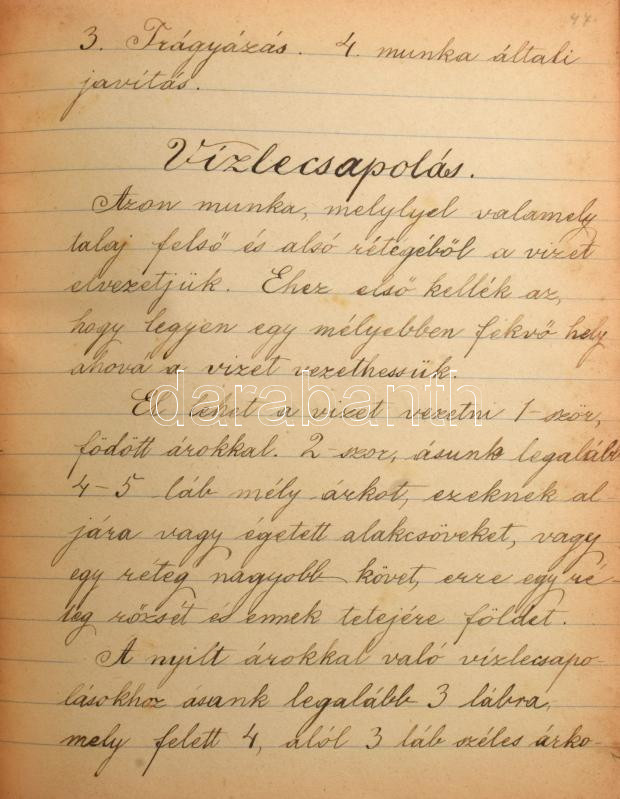 47.
3. Trágyázás. 4. munka általi
javítás.
Vízlecsapolás.
Azon munka, melylyel valamely
talaj felső és alsó rétegéből a vizet
elvezetjük. Ehez első kellék az,
hogy legyen egy mélyebben fekvő hely
ahova a vizet vezethessük.
darabanth
El lehet a vizet vezetni 1-ször,
födött árokkal. 2-szor, ásunk legalább
4-5 láb mély árkot, ezeknek al-
jára vagy égetett alakcsöveket, vagy
egy réteg nagyobb követ, erre egy ré-
teg rőzsét es ennek tetejére földet.
A nyilt árokkal való vízlecsapo-
lásokhoz ásunk legalább 3 lábra,
mely felett 4, alól 3 láb széles árko-